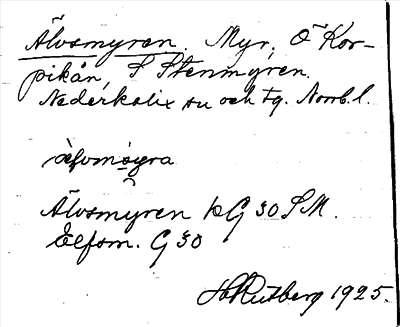 Älvsmyren. Myr, Ö Kor-
pikån, S Stenmyren.
Nederkalix sn och tg. Norrb. l.
älvsmyra
Älvsmyren kG 30 S M.
Elfsm. G 30
H Rutberg 1925.